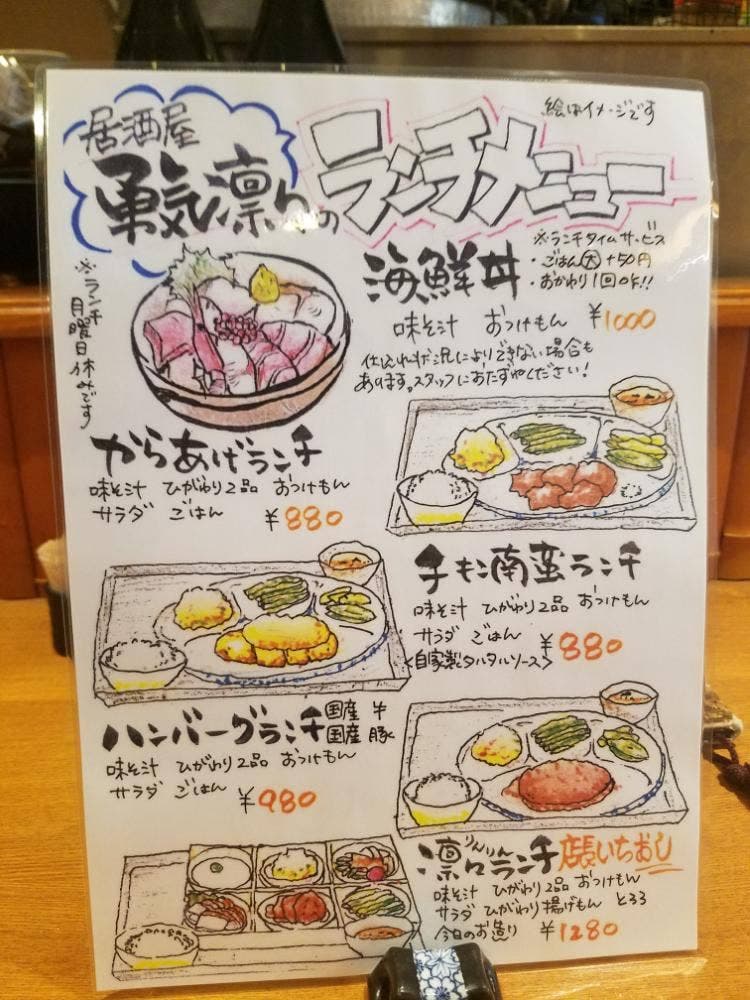 居酒屋
勇気凛々の
ランチメニュー
絵はイメージです
※ランチタイムサービス
・ごはん大+50円
・おかわり1回OK!!
※ランチ
月曜日休みです
海鮮丼
味そ汁 おつけもん ¥1000
仕込れ状況によりできない場合も
あります。スタッフにおたずねください!
からあげランチ
味そ汁 ひがわり2品 おつけもん
サラダ ごはん ¥880
チキン南蛮ランチ
味そ汁 ひがわり2品 おつけもん
サラダ ごはん ¥880
<自家製タルタルソース>
ハンバーグランチ 国産 牛
国産 豚
味そ汁 ひがわり2品 おつけもん
サラダ ごはん ¥980
りんりん
凛々ランチ 店長いちおし
味そ汁 ひがわり2品 おつけもん
サラダ ひがわり揚げもん とろろ
今日のお造り ¥1280